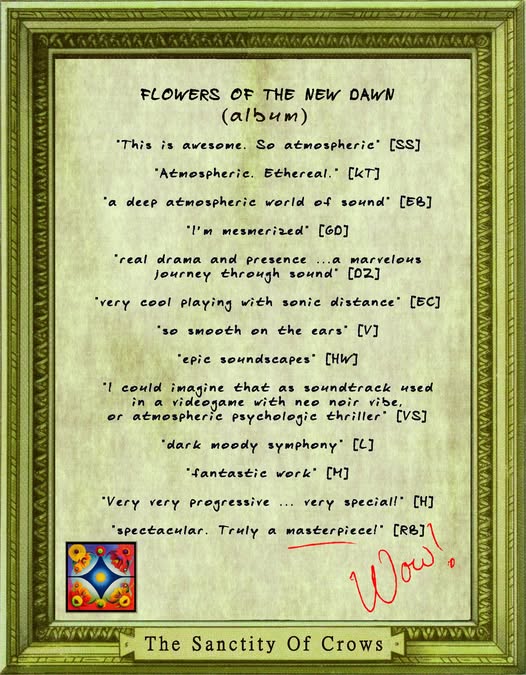 FLOWERS OF THE NEW DAWN
(album)
"This is awesome. So atmospheric" [SS]
"Atmospheric. Ethereal." [KT]
"a deep atmospheric world of sound" [EB]
"I'm mesmerized" [GD]
"real drama and presence ...a marvelous
journey through sound" [DZ]
"very cool playing with sonic distance" [EC]
"so smooth on the ears" [V]
"epic soundscapes" [HW]
"I could imagine that as soundtrack used
in a videogame with neo noir vibe,
or atmospheric psychologic thriller" [VS]
"dark moody symphony" [L]
"fantastic work" [M]
"Very very progressive ... very special!" [H]
"spectacular. Truly a masterpiece!" [RB]
Wow!
The Sanctity Of Crows